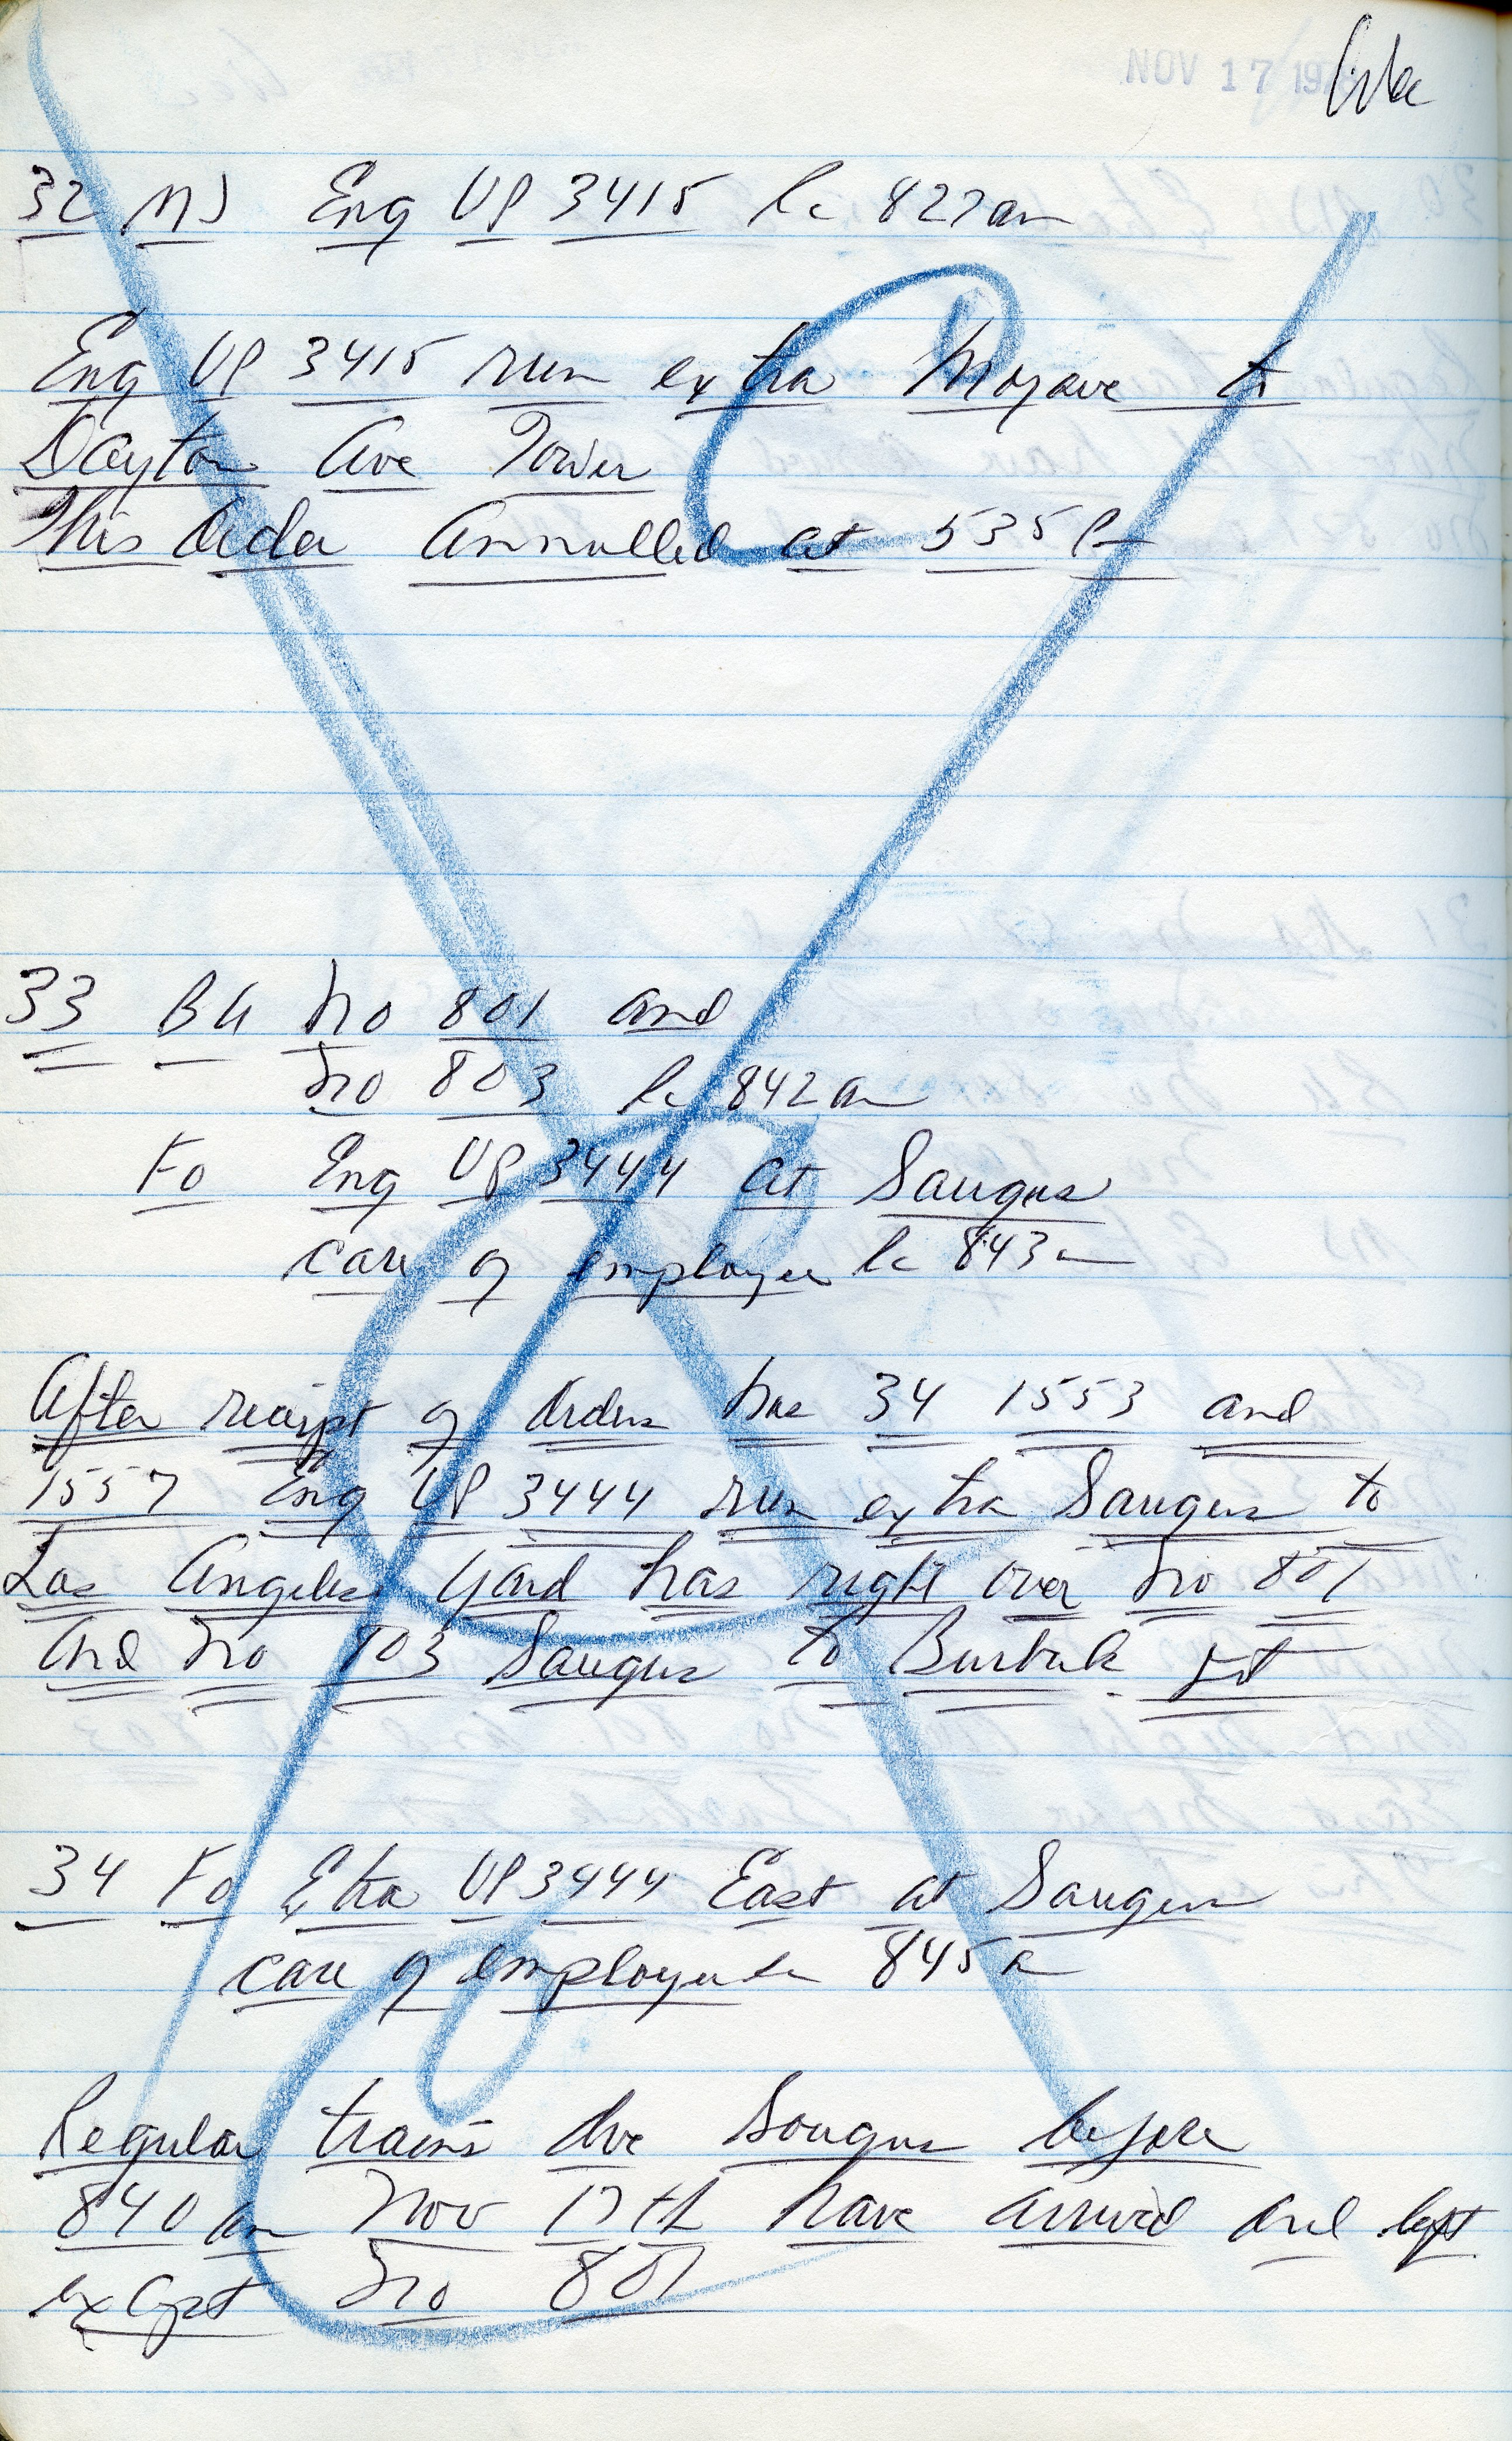 NOV 17 19
32 MJ Eng UP 3415 Rc 822am
Eng UP 3415 run extra Mojave to
Dayton Ave Tower
This Order Annulled at 535 P
33 BU No 801 and
No 803 Rc 842am
Fo Eng UP 3444 at Saugus
care of employee Rc 843a
After receipt of Orders Nos 34 1553 and
1557 Eng UP 3444 run extra Saugus to
Los Angeles Yard has right over No 801
and No 803 Saugus to Burbank Jct
34 Fo Extra UP 3444 East at Saugus
care of employee Rc 845a
Regular trains due Saugus before
840 am Nov 17th have arrived and left
except No 801